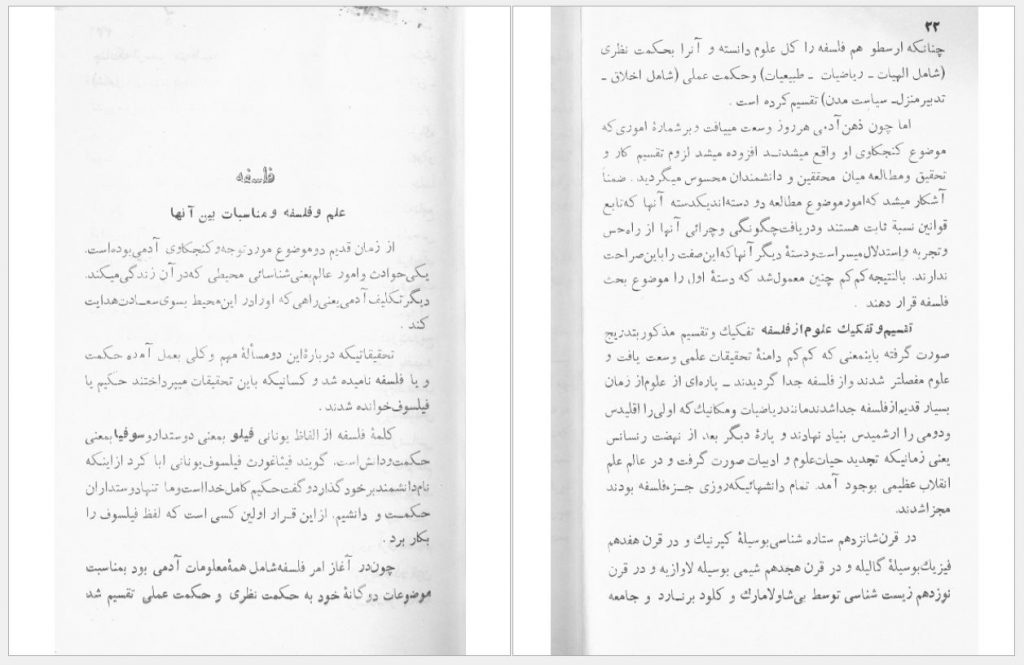 فلسفه
علم و فلسفه و مناسبات بین آنها
از زمان قدیم دو موضوع مورد توجه و کنجکاوی آدمی بوده است.
یکی حوادث و امور عالم یعنی شناسائی محیطی که در آن زندگی میکند.
دیگر تکلیف آدمی یعنی راهی که او را در این محیط بسوی سعادت هدایت
کند .
تحقیقاتیکه دربارهٔ این دو مسألهٔ مهم و کلی بعمل آمده حکمت
و یا فلسفه نامیده شد و کسانیکه باین تحقیقات میپرداختند حکیم یا
فیلسوف خوانده شدند .
کلمهٔ فلسفه از الفاظ یونانی فیلو بمعنی دوستدار و سوفیا بمعنی
حکمت و دانش است. گویند فیثاغورث فیلسوف یونانی ابا کرد از اینکه
نام دانشمند بر خود گذارد و گفت حکیم کامل خدا است و ما تنها دوستداران
حکمت و دانشیم. از این قرار اولین کسی است که لفظ فیلسوف را
بکار برد .
چون در آغاز امر فلسفه شامل همهٔ معلومات آدمی بود بمناسبت
موضوعات دوگانهٔ خود به حکمت نظری و حکمت عملی تقسیم شد
۲۲
چنانکه ارسطو هم فلسفه را کل علوم دانسته و آنرا بحکمت نظری
(شامل الهیات ـ ریاضیات ـ طبیعیات) وحکمت عملی (شامل اخلاق ـ
تدبیر منزل ـ سیاست مدن) تقسیم کرده است .
اما چون ذهن آدمی هر روز وسعت مییافت و بر شمارهٔ اموری که
موضوع کنجکاوی او واقع میشدند افزوده میشد لزوم تقسیم کار و
تحقیق ومطالعه میان محققین و دانشمندان محسوس میگردید . ضمناً
آشکار میشد که امور موضوع مطالعه دو دسته اند یکدسته آنها که تابع
قوانین نسبة ثابت هستند و دریافت چگونگی و چرائی آنها از راه حس
و تجربه و استدلال میسر است و دستهٔ دیگر آنها که این صفت را باین صراحت
ندارند. بالنتیجه کم کم چنین معمول شد که دستهٔ اول را موضوع بحث
فلسفه قرار دهند .
تقسیم و تفکیك علوم از فلسفه تفکیك و تقسیم مذکور بتدریج
صورت گرفته باینمعنی که کم کم دامنهٔ تحقیقات علمی وسعت یافت و
علوم مفصلتر شدند و از فلسفه جدا گردیدند ـ پاره‌ای از علوم از زمان
بسیار قدیم از فلسفه جدا شدند مانند ریاضیات و مکانیك که اولی را اقلیدس
ودومی را ارشمیدس بنیاد نهادند و پارهٔ دیگر بعد از نهضت رنسانس
یعنی زمانیکه تجدید حیات علوم و ادبیات صورت گرفت و در عالم علم
انقلاب عظیمی بوجود آمد. تمام دانشهائیکه روزی جزء فلسفه بودند
مجزا شدند.
در قرن شانزدهم ستاره شناسی بوسیلهٔ کپرنیك و در قرن هفدهم
فیزیك بوسیلهٔ گالیله و در قرن هجدهم شیمی بوسیله لاوازیه و در قرن
نوزدهم زیست شناسی توسط بی‌شا و لامارك و کلود برنارد و جامعه